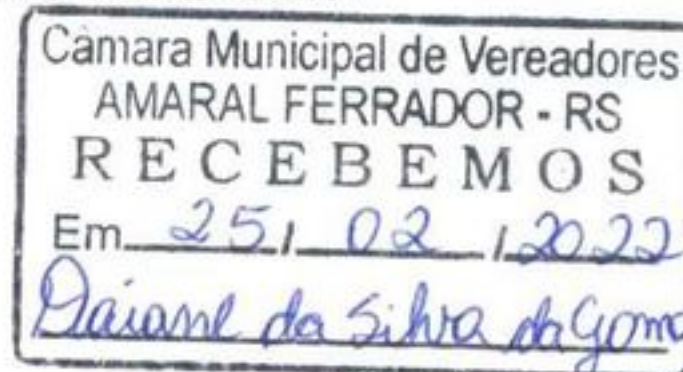 Câmara Municipal de Vereadores
AMARAL FERRADOR - RS
RECEBEMOS
Em 25 / 02 / 2022
Daiane da Silva da